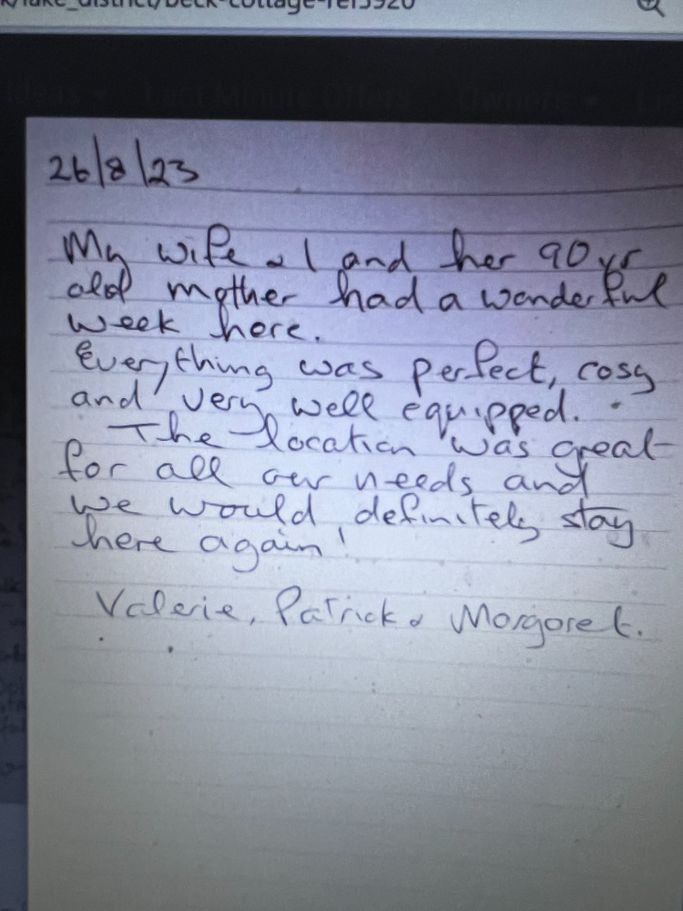 k/lake_district/beck-cottage-ref3920
Last Minute Offers
Owners
26/8/23
My wife & I and her 90 yr
old mother had a wonderful
week here.
Everything was perfect, cosy
and very well equipped.
The location was great
for all our needs and
we would definitely stay
here again!
Valerie, Patrick & Margaret.